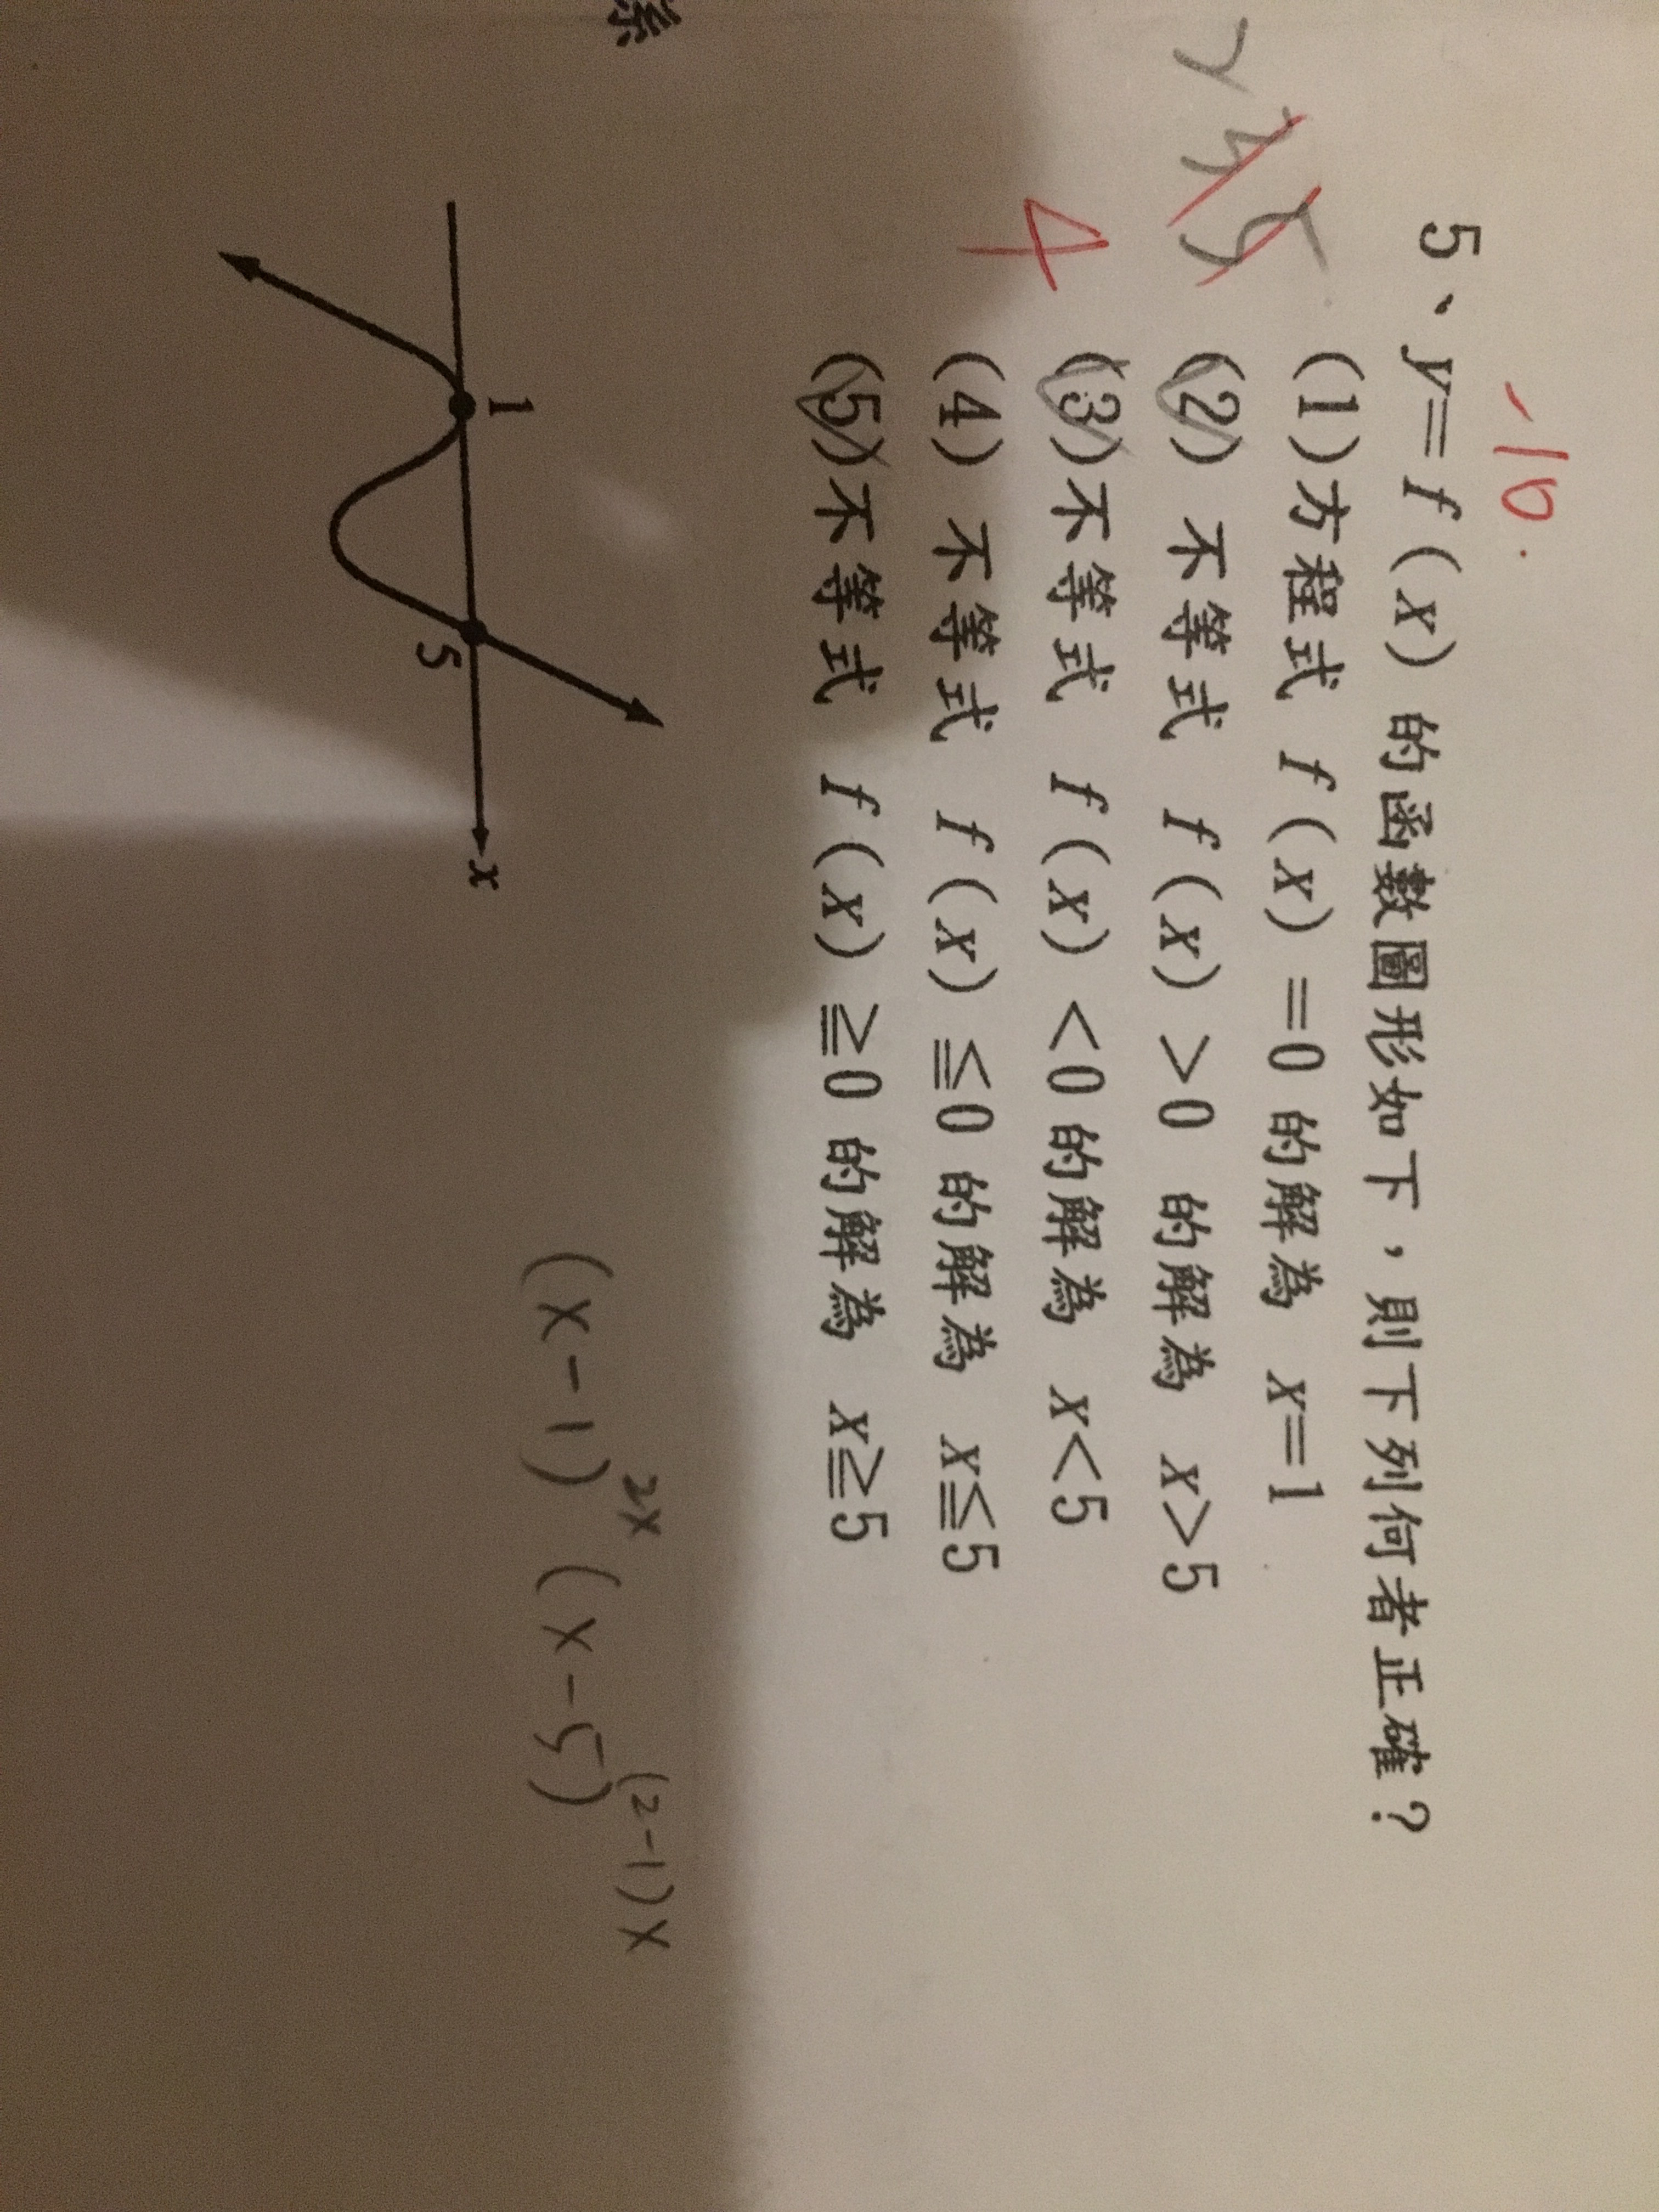 -10.
5、y=f(x) 的函數圖形如下，則下列何者正確？
(1)方程式 f(x) =0 的解為 x=1
(2) 不等式 f(x) >0 的解為 x>5
(3)不等式 f(x) <0 的解為 x<5
(4) 不等式 f(x) ≦0 的解為 x≦5
(5)不等式 f(x) ≧0 的解為 x≧5
4
1
5
x
(x-1)^2x (x-5)^(2-1)x
係